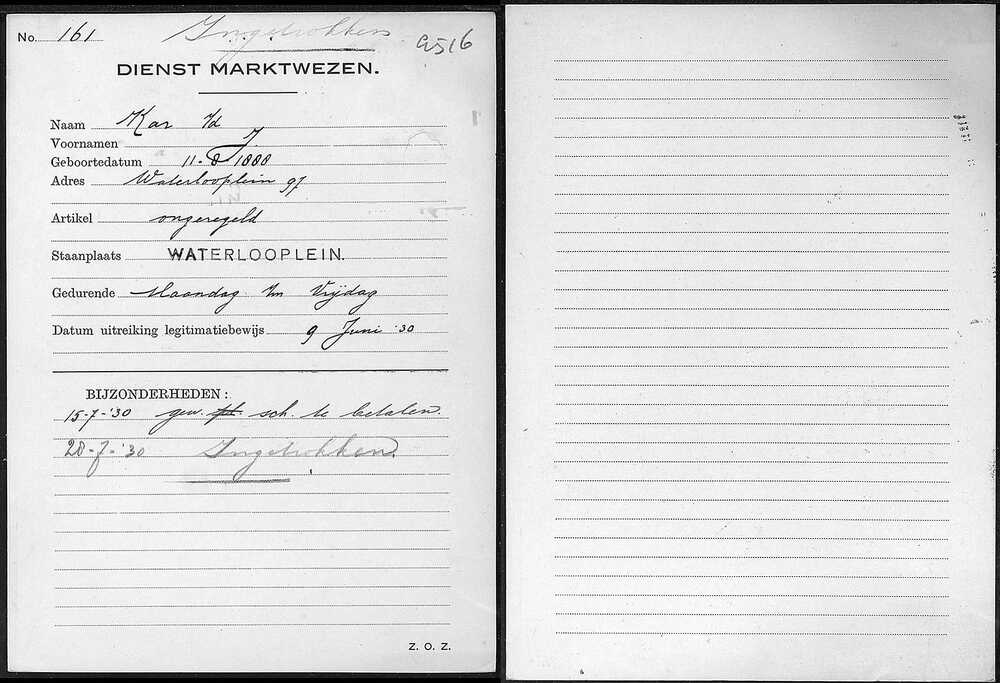 No. 161 Ingetrokken 9516
DIENST MARKTWEZEN.
Naam Kar v/d
Voornamen J.
Geboortedatum 11-8-1888
Adres Waterlooplein 97
Artikel ongeregeld
Staanplaats WATERLOOPLEIN.
Gedurende Maandag t/m Vrijdag
Datum uitreiking legitimatiebewijs 9 Juni '30
BIJZONDERHEDEN:
15-7-'30 gew. sch. te betalen.
28-7-'30 Ingetrokken.
Z. O. Z.